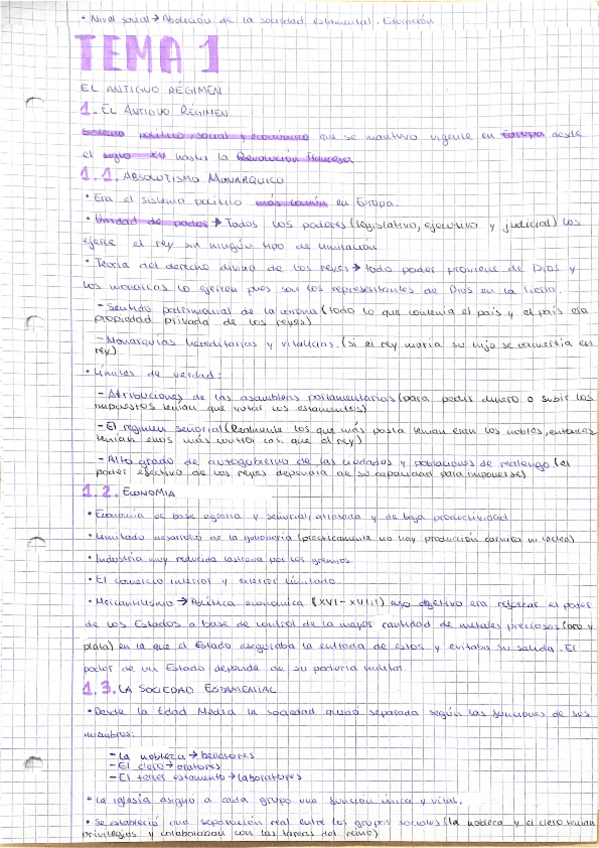 • Nivel social → Abolición de la sociedad estamental. Educación
TEMA 1
EL ANTIGUO RÉGIMEN
1. EL ANTIGUO RÉGIMEN
Sistema político, social y económico que se mantuvo vigente en Europa desde
el siglo XV hasta la Revolución francesa
1.1. ABSOLUTISMO MONÁRQUICO
• Era el sistema político más común en Europa.
• Unidad de poder → Todos los poderes (legislativo, ejecutivo y judicial) los
ejerce el rey sin ningún tipo de limitación
• Teoría del derecho divino de los reyes → todo poder proviene de Dios y
los monarcas lo ejercen pues son los representantes de Dios en la tierra.
- Sentido patrimonial de la corona (todo lo que contenía el país y el país era
propiedad privada de los reyes)
- Monarquías hereditarias y vitalicias. (si el rey moría su hijo se convertía en
rey)
• Límites de verdad:
- Atribuciones de las asambleas parlamentarias (para pedir dinero o subir los
impuestos tenían que votar los estamentos)
- El régimen señorial (Realmente los que más pasta tenían eran los nobles, entonces
tenían ellos más control con que el rey)
- Alto grado de autogobierno de las ciudades y poblaciones de realengo (el
poder efectivo de los reyes dependía de su capacidad para imponerse)
1.2. ECONOMÍA
• Economía de base agraria y señorial, atrasada y de baja productividad
• Limitado desarrollo de la ganadería (prácticamente no hay producción cárnica ni láctea)
• Industria muy reducida por los gremios
• El comercio interior y exterior limitado.
• Mercantilismo → Política económica (XVI-XVIII) cuyo objetivo era reforzar el poder
de los Estados a base de control de la mayor cantidad de metales preciosos (oro y
plata) en la que el Estado aseguraba la entrada de estos y evitaba su salida. El
poder de un Estado depende de su poderío militar.
1.3. LA SOCIEDAD ESTAMENTAL
• Desde la Edad Media la sociedad quedó separada según las funciones de sus
miembros:
- La nobleza → bellatores
- El clero → oratores
- El tercer estamento → laboratores
• La iglesia asignó a cada grupo una función única y vital.
• Se estableció una separación real entre los grupos sociales (la nobleza y el clero tenían
privilegios y colaboraban con las tareas del reino)